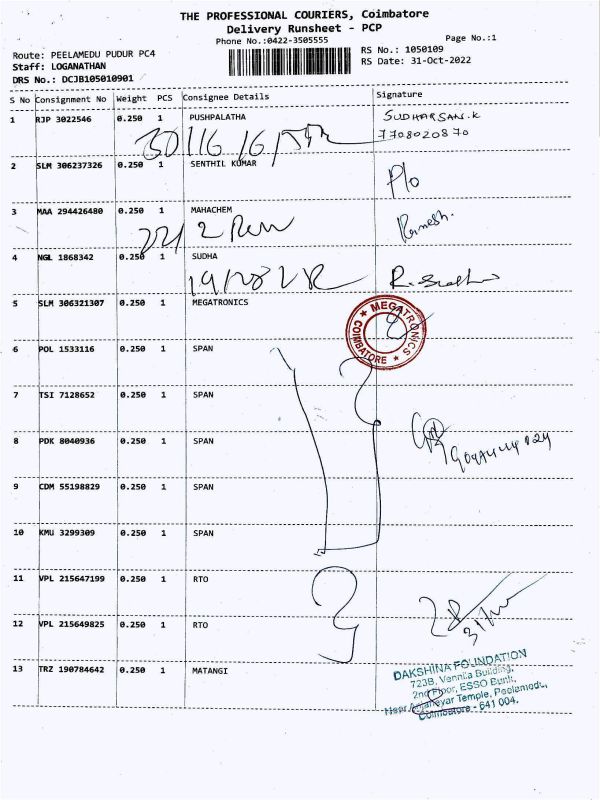 THE PROFESSIONAL COURIERS, Coimbatore
Delivery Runsheet - PCP
Phone No.:0422-3505555
Page No.:1
Route: PEELAMEDU PUDUR PC4
Staff: LOGANATHAN
DRS No.: DCJB105010901
RS No.: 1050109
RS Date: 31-Oct-2022
S No Consignment No Weight PCS Consignee Details Signature
1 RJP 3022546 0.250 1 PUSHPALATHA SUDHARSAN.K
7708020870
2 SLM 306237326 0.250 1 SENTHIL KUMAR P/o
3 MAA 294426480 0.250 1 MAHACHEM Ramesh.
4 NGL 1868342 0.250 1 SUDHA
5 SLM 306321307 0.250 1 MEGATRONICS
MEGATRONICS
COIMBATORE
6 POL 1533116 0.250 1 SPAN
7 TSI 7128652 0.250 1 SPAN
8 PDK 8040936 0.250 1 SPAN
9 CDM 55198829 0.250 1 SPAN
10 KMU 3299309 0.250 1 SPAN
11 VPL 215647199 0.250 1 RTO
12 VPL 215649825 0.250 1 RTO
13 TRZ 190784642 0.250 1 MATANGI
DAKSHINA FOUNDATION
723B, Vennila Building,
2nd Floor, ESSO Bunk,
Near Anjaneyar Temple, Peelamedu,
Coimbatore - 641 004.